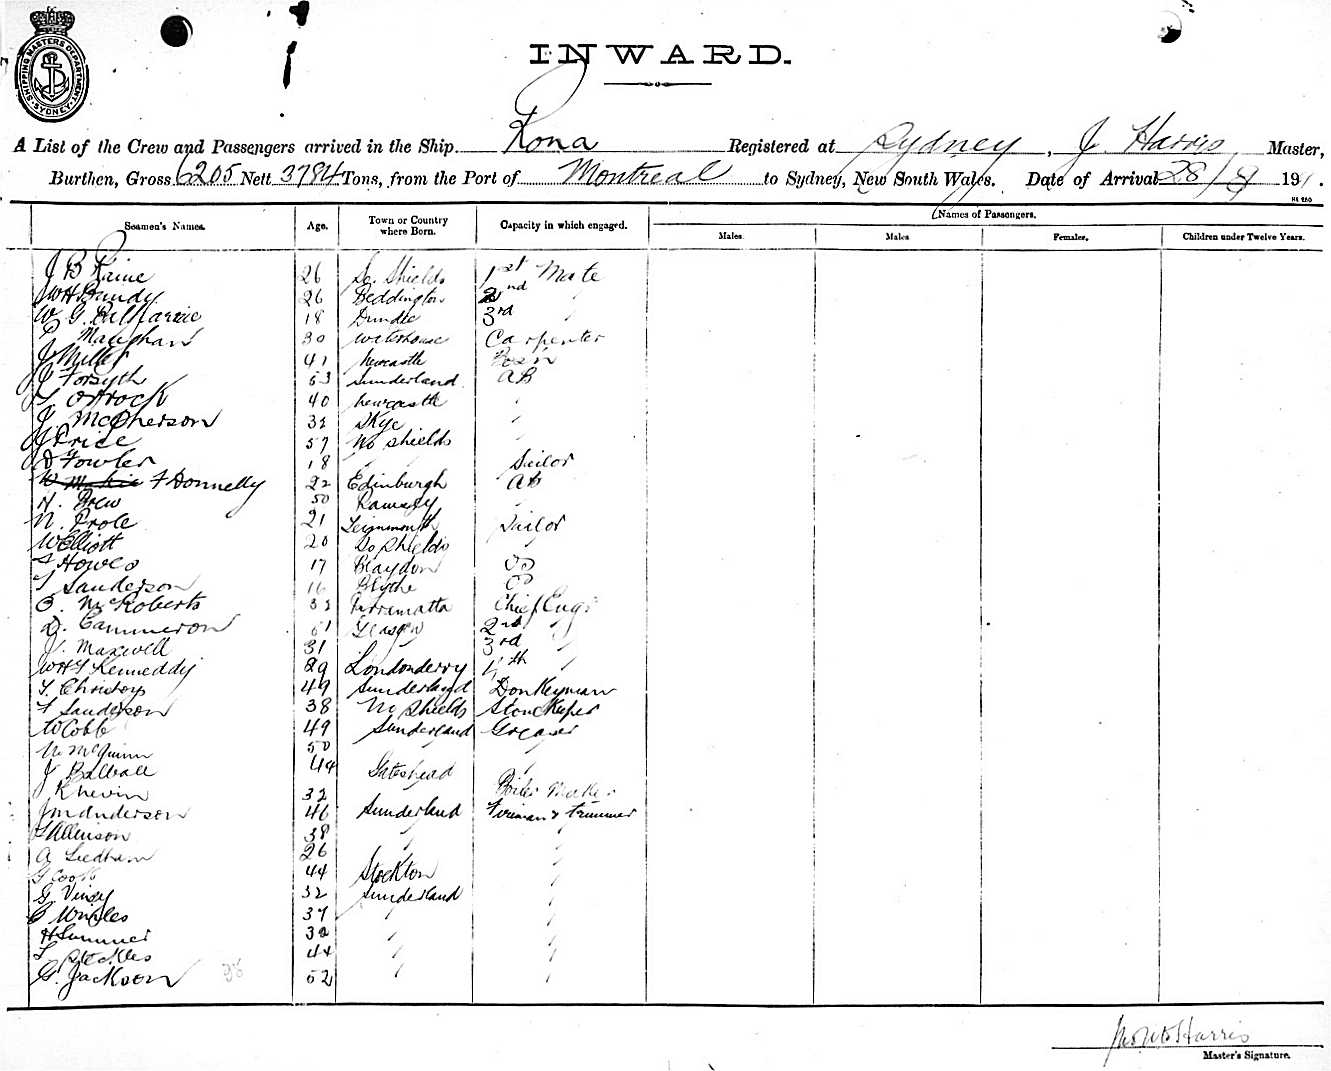 SHIPPING MASTERS DEPARTMENT SYDNEY
INWARD.
A List of the Crew and Passengers arrived in the Ship Rona Registered at Sydney, J. Harris Master,
Burthen, Gross 6205 Nett 3784 Tons, from the Port of Montreal to Sydney, New South Wales. Date of Arrival 28/ 191 .
Seamen's Names. Age. Town or Country where Born. Capacity in which engaged. Names of Passengers.
Males. Males Females. Children under Twelve Years.
J B Raine 26 So. Shields 1st Mate
WH Bundy 26 Beddington 2nd "
W. G. 18 Dundee 3rd
Maughan 30 Waterhouse Carpenter
J Miller 41 Newcastle Bos'n
J Forsyth 53 Sunderland AB
Orrock 40 Newcastle "
J. McPherson 32 Skye "
J Price 57 No Shields
D Fowler 18 " Sailor
F Donnelly 22 Edinburgh AB
H. Brew 50 Ramsey "
N. Prole 21 Teignmouth Sailor
W Elliott 20 So Shields "
Howes 17 Blaydon
Sanderson 16 Blythe
McRoberts 32 Parramatta Chief Engr
D. Cammeron 51 Glasgow 2nd "
J. Maxwell 31 " 3rd "
WH Kenneddy 29 Londonderry 4th
T. Christoy 49 Sunderland Donkeyman
Sanderson 38 No Shields Storekeeper
W Cobb 49 Sunderland Greaser
McGuinn 50
J 44 Gateshead "
Nevin 32 Boiler Maker
J M Anderson 46 Sunderland Fireman & Trimmer
Allenson 38 " "
A Leedham 26 " "
G Cook 44 Stockton "
G. Viney 32 Sunderland "
37 " "
H Sumner 32 " "
44 " "
G. Jackson 52 " "
Harris
Master's Signature.